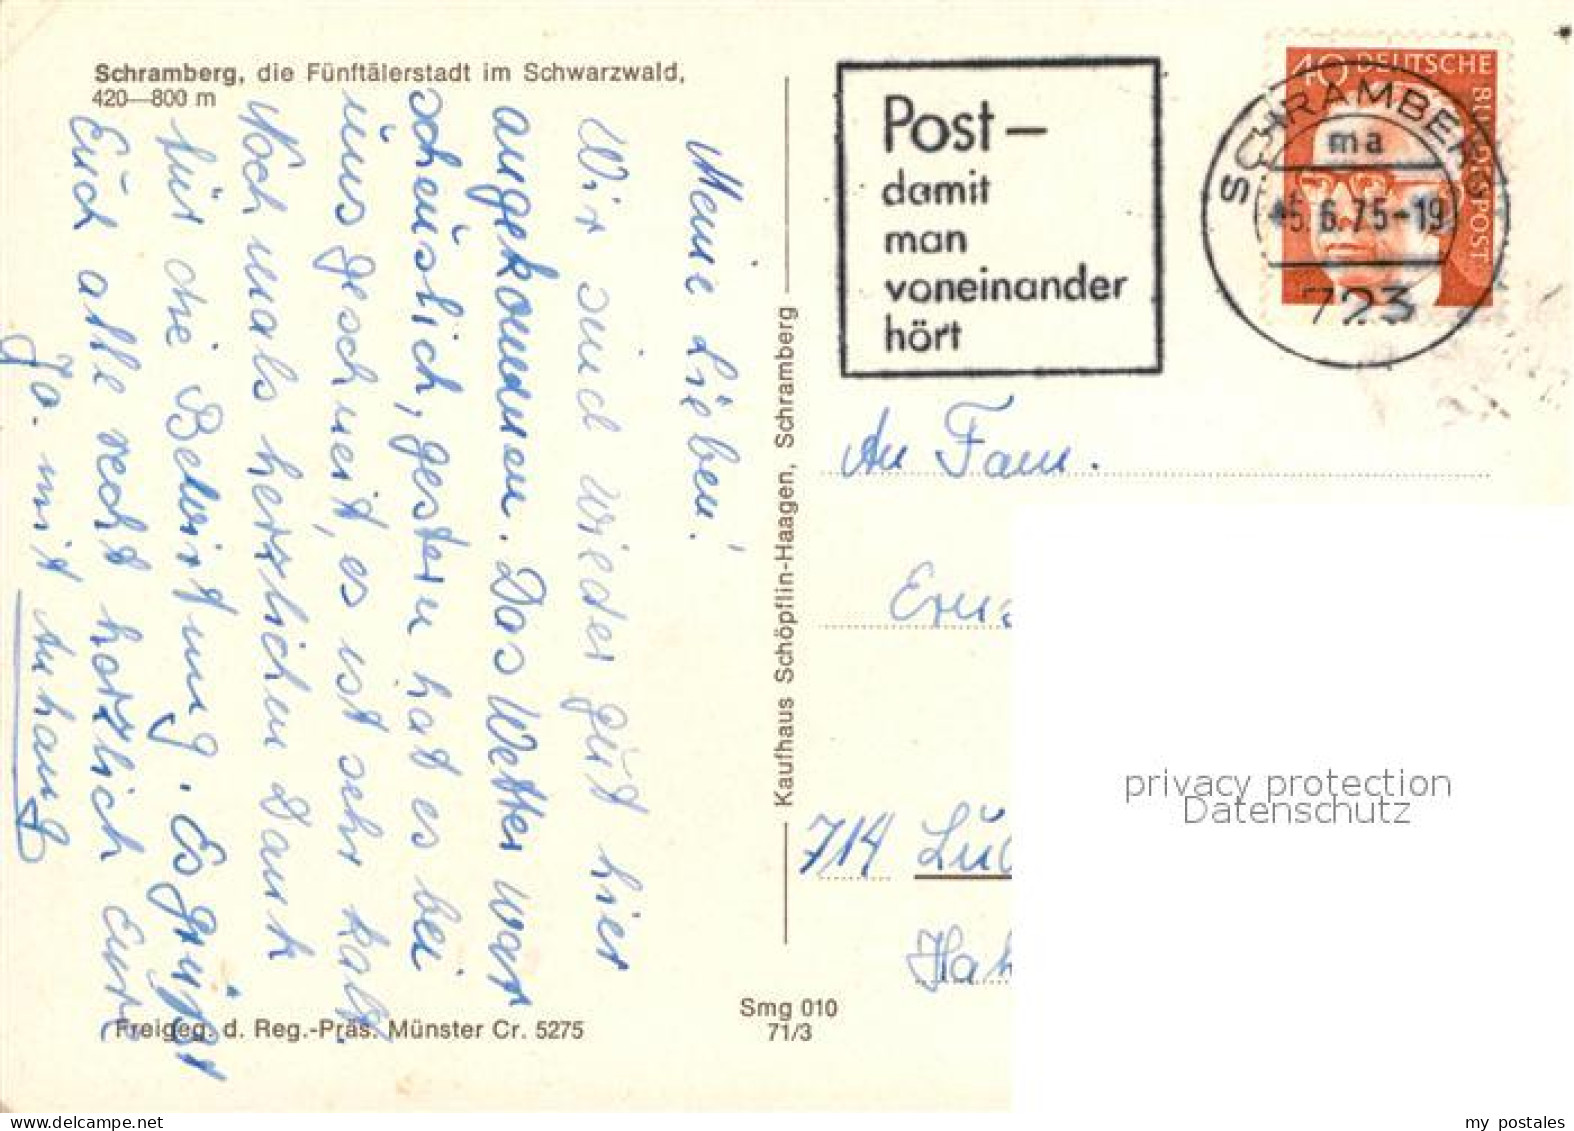 Schramberg, die Fünftälerstadt im Schwarzwald,
420—800 m
Meine Lieben!
Wir sind wieder gut hier
angekommen. Das Wetter war
scheuslich, gestern hat es bei
uns geschneit, es ist sehr kalt.
Nochmals herzlichen Dank
für die Bewirtung. Es grüßt
Euch alle recht herzlich Eure
Jo. mit Anhang
Kaufhaus Schöpflin-Haagen, Schramberg
Freigeg. d. Reg.-Präs. Münster Cr. 5275
Smg 010
71/3
Post—
damit
man
voneinander
hört
40 DEUTSCHE BUNDESPOST
SCHRAMBERG
ma
6.75-19
723
An Fam.
714
privacy protection
Datenschutz
my postales